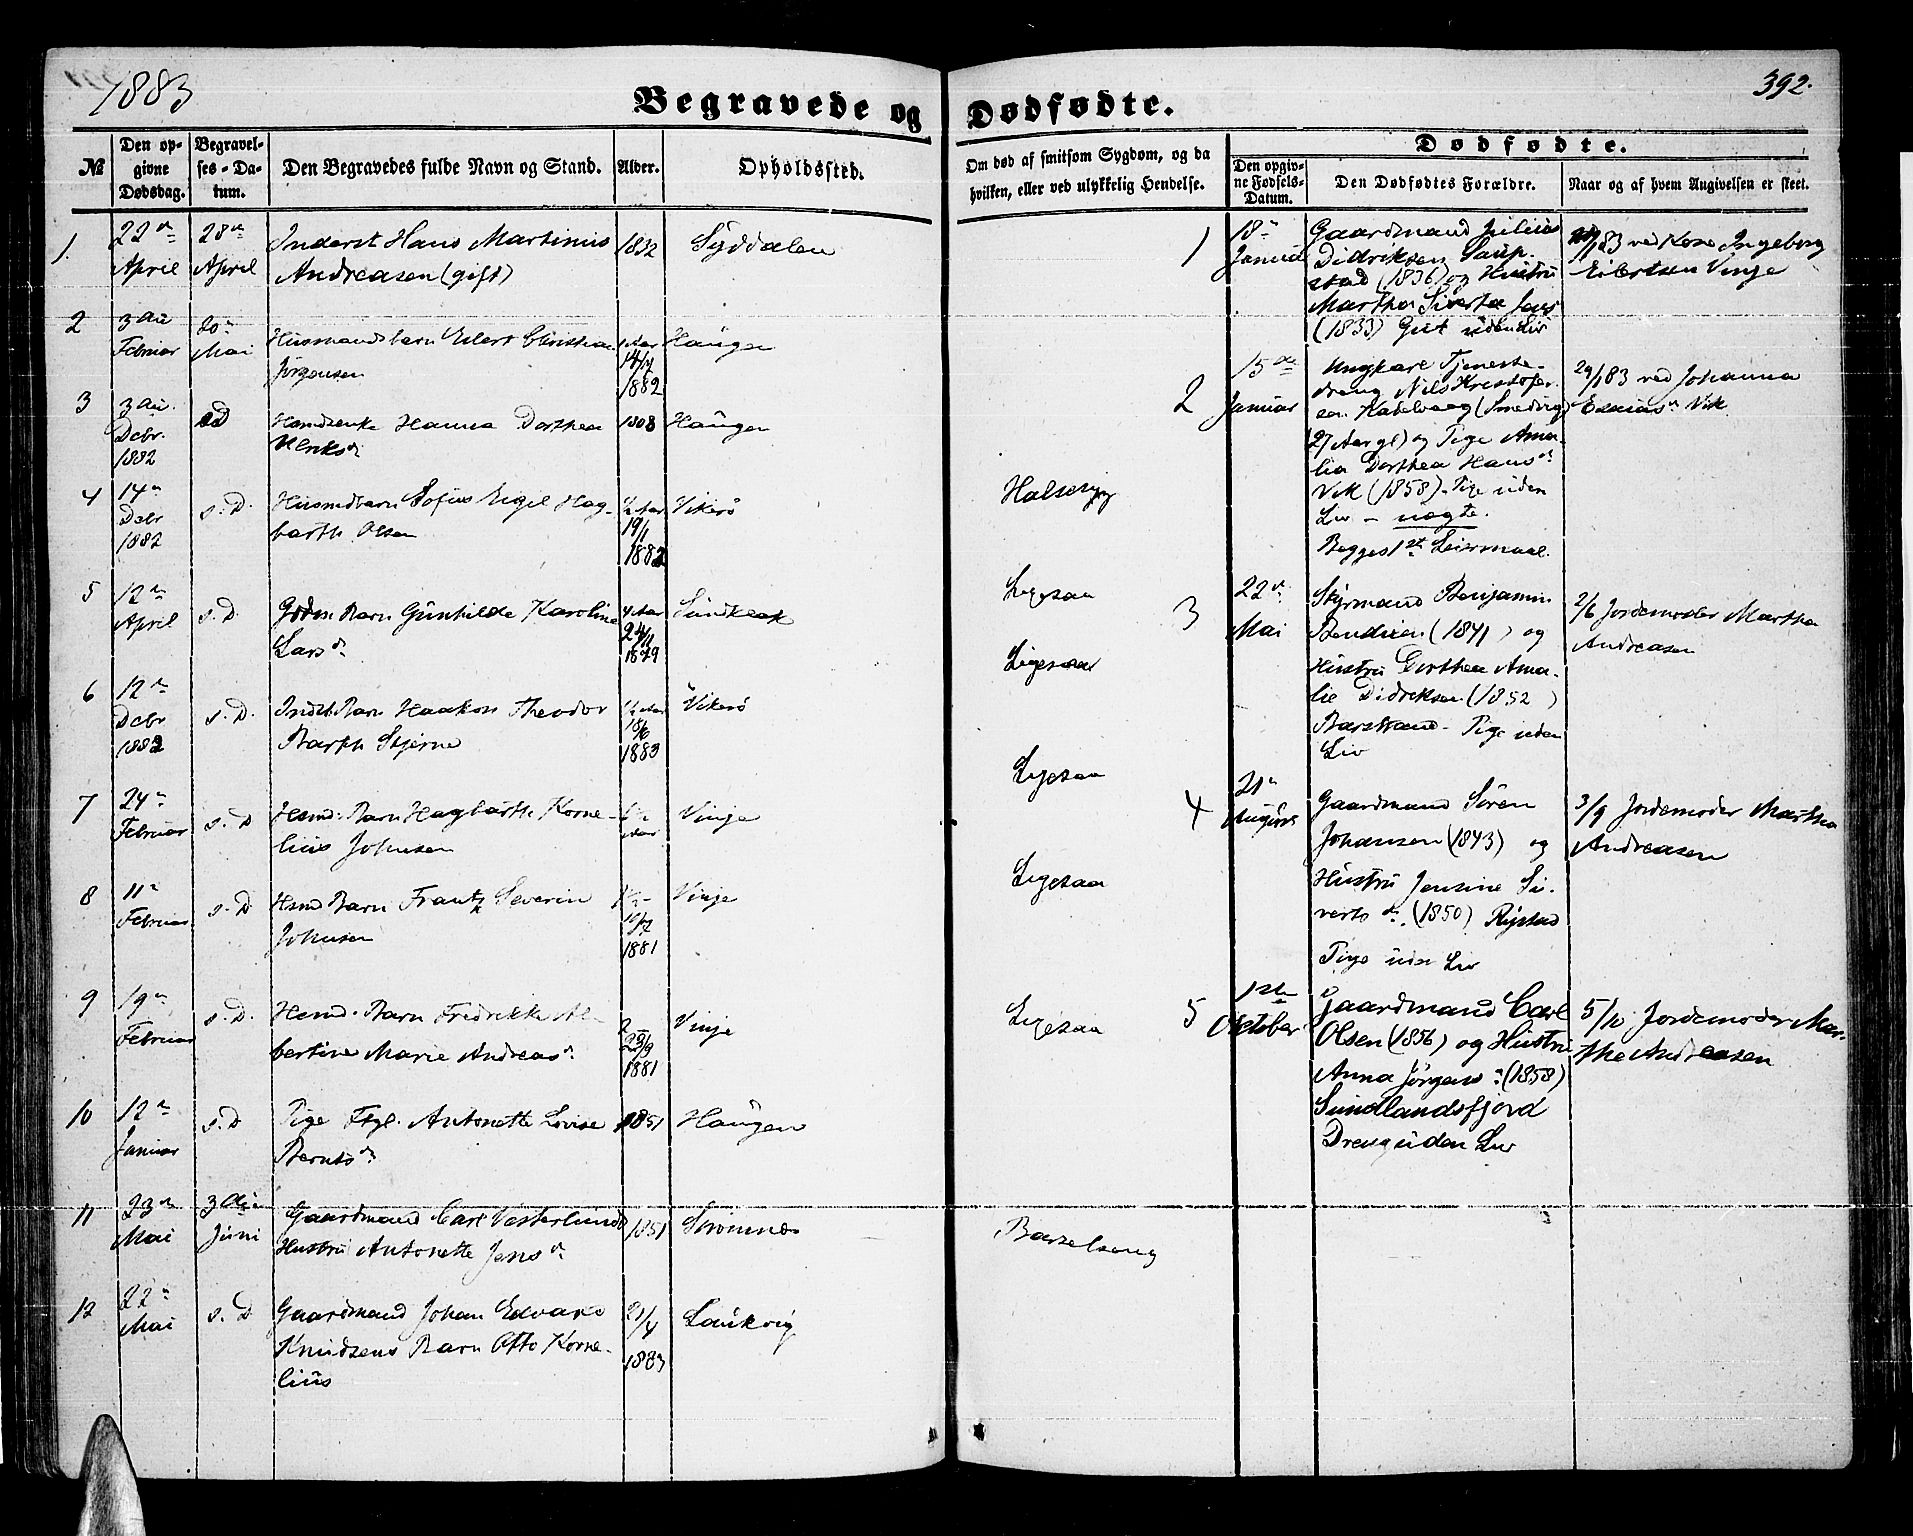 1883
392.
Begravede og Dødfødte.
№
Den opgivne Dødsdag.
Begravelses-Datum.
Den Begravedes fulde Navn og Stand.
Alder.
Opholdssted.
Om død af smitsom Sygdom, og da
hvilken, eller ved ulykkelig Hendelse.
Dødfødte.
Den opgivne Fødsels-Datum.
Den Dødfødtes Forældre.
Naar og af hvem Angivelsen er skeet.
1.
22de
April
28de
April
Inderst Hans Martinius
Andreasen (gift)
1832
Syddalen
2
3die
Februar
20de
Mai
Husmandsbarn Edert Christian
Jørgensen
1 Aar
14/4
1882
Haugen
3
3die.
Decbr.
1882
s D
Hsmdsenke Hanna Dorthea
Ulriksdr
1808
Haugen
4
14de
Decbr
1882
s. D.
Husmdbarn Sofus Eigel Hag-
barth Olsen
1/2 Aar
19/1
1882
Vikerø
Halsesyg
5
12de
April
s. D
Grdm. Barn Gunhilde Karoline
Larsdr
4 Aar
24/11
1879
Sundklak
Ligesaa
6
12de
Decbr
1882
s. D.
Indst. Barn Haakon Theodor
Barth Stjerne
1/2 Aar
18/6
1883
Vikerø
Ligesaa
7
24de
Februar
s. D
Hsmd. Barn Hagbarth Korne-
lius Johnsen
Aar
Vinje
Ligesaa
8
11te
Februar
s. D
Hsmd Barn Frantz Severin
Johnsen
1881
Vinje
Ligesaa
9
19de
Februar
s. D.
Hsmd. Barn Fredrikke Al-
bertine Marie Andreasdr
2
23/9
1881
Vinje
Ligesaa
10
12de
Januar
s. D
Pige Ftgl. Antonette Lovise
Berntsdr
1851
Haugen
11
23de
Mai
3die
Juni
Gaardmand Carl Vesterlunds
Hustru Antonette Jensdr
1851
Strømnes
Barselseng
12
22de
Mai
s. D
Gaardmand Johan Edvard
Knudsens Barn Otto Korne-
lius
21/4
1883
Laukvig
1
18de
Januar
Gaardmand Julius
Didriksen Saup-
stad (1836) og Hustru
Martha Sivertea Jens
(1833) Gut uden Liv
/1 83 ved Kone Ingeborg
Eilertsen Vinje
2
15de
Januar
Ungkarl Tjeneste-
dreng Nils Kristofer-
sen Kabelvaag (Smedvig)
27 Aar gl) og Pige Ama-
lia Dorthea Hansdr
Vik (1858). Pige uden
Liv – uægte.
Begges 1st Leiermaal.
29/1 83 ved Johanna
Esaiasdr Vik
3
22de
Mai
Styrmand Benjamin
Bendixen (1841) og
Hustru Dorthea Ama-
lie Didriksen (1852)
Barstrand – Pige uden
Liv
2/6 Jordemoder Martha
Andreasen
4
21de
August
Gaardmand Søren
Johansen (1843) og
Hustru Jensine Si-
vertsdr. (1850) Rystad
Pige uden Liv
3/9 Jordemoder Martha
Andreasen
5
1ste
Oktober
Gaardmand Carl
Olsen (1856) og Hustru
Anna Jørgensdr (1858)
Sundlandsfjord
Dreng uden Liv
5/10 Jordemoder Mar-
the Andreasen